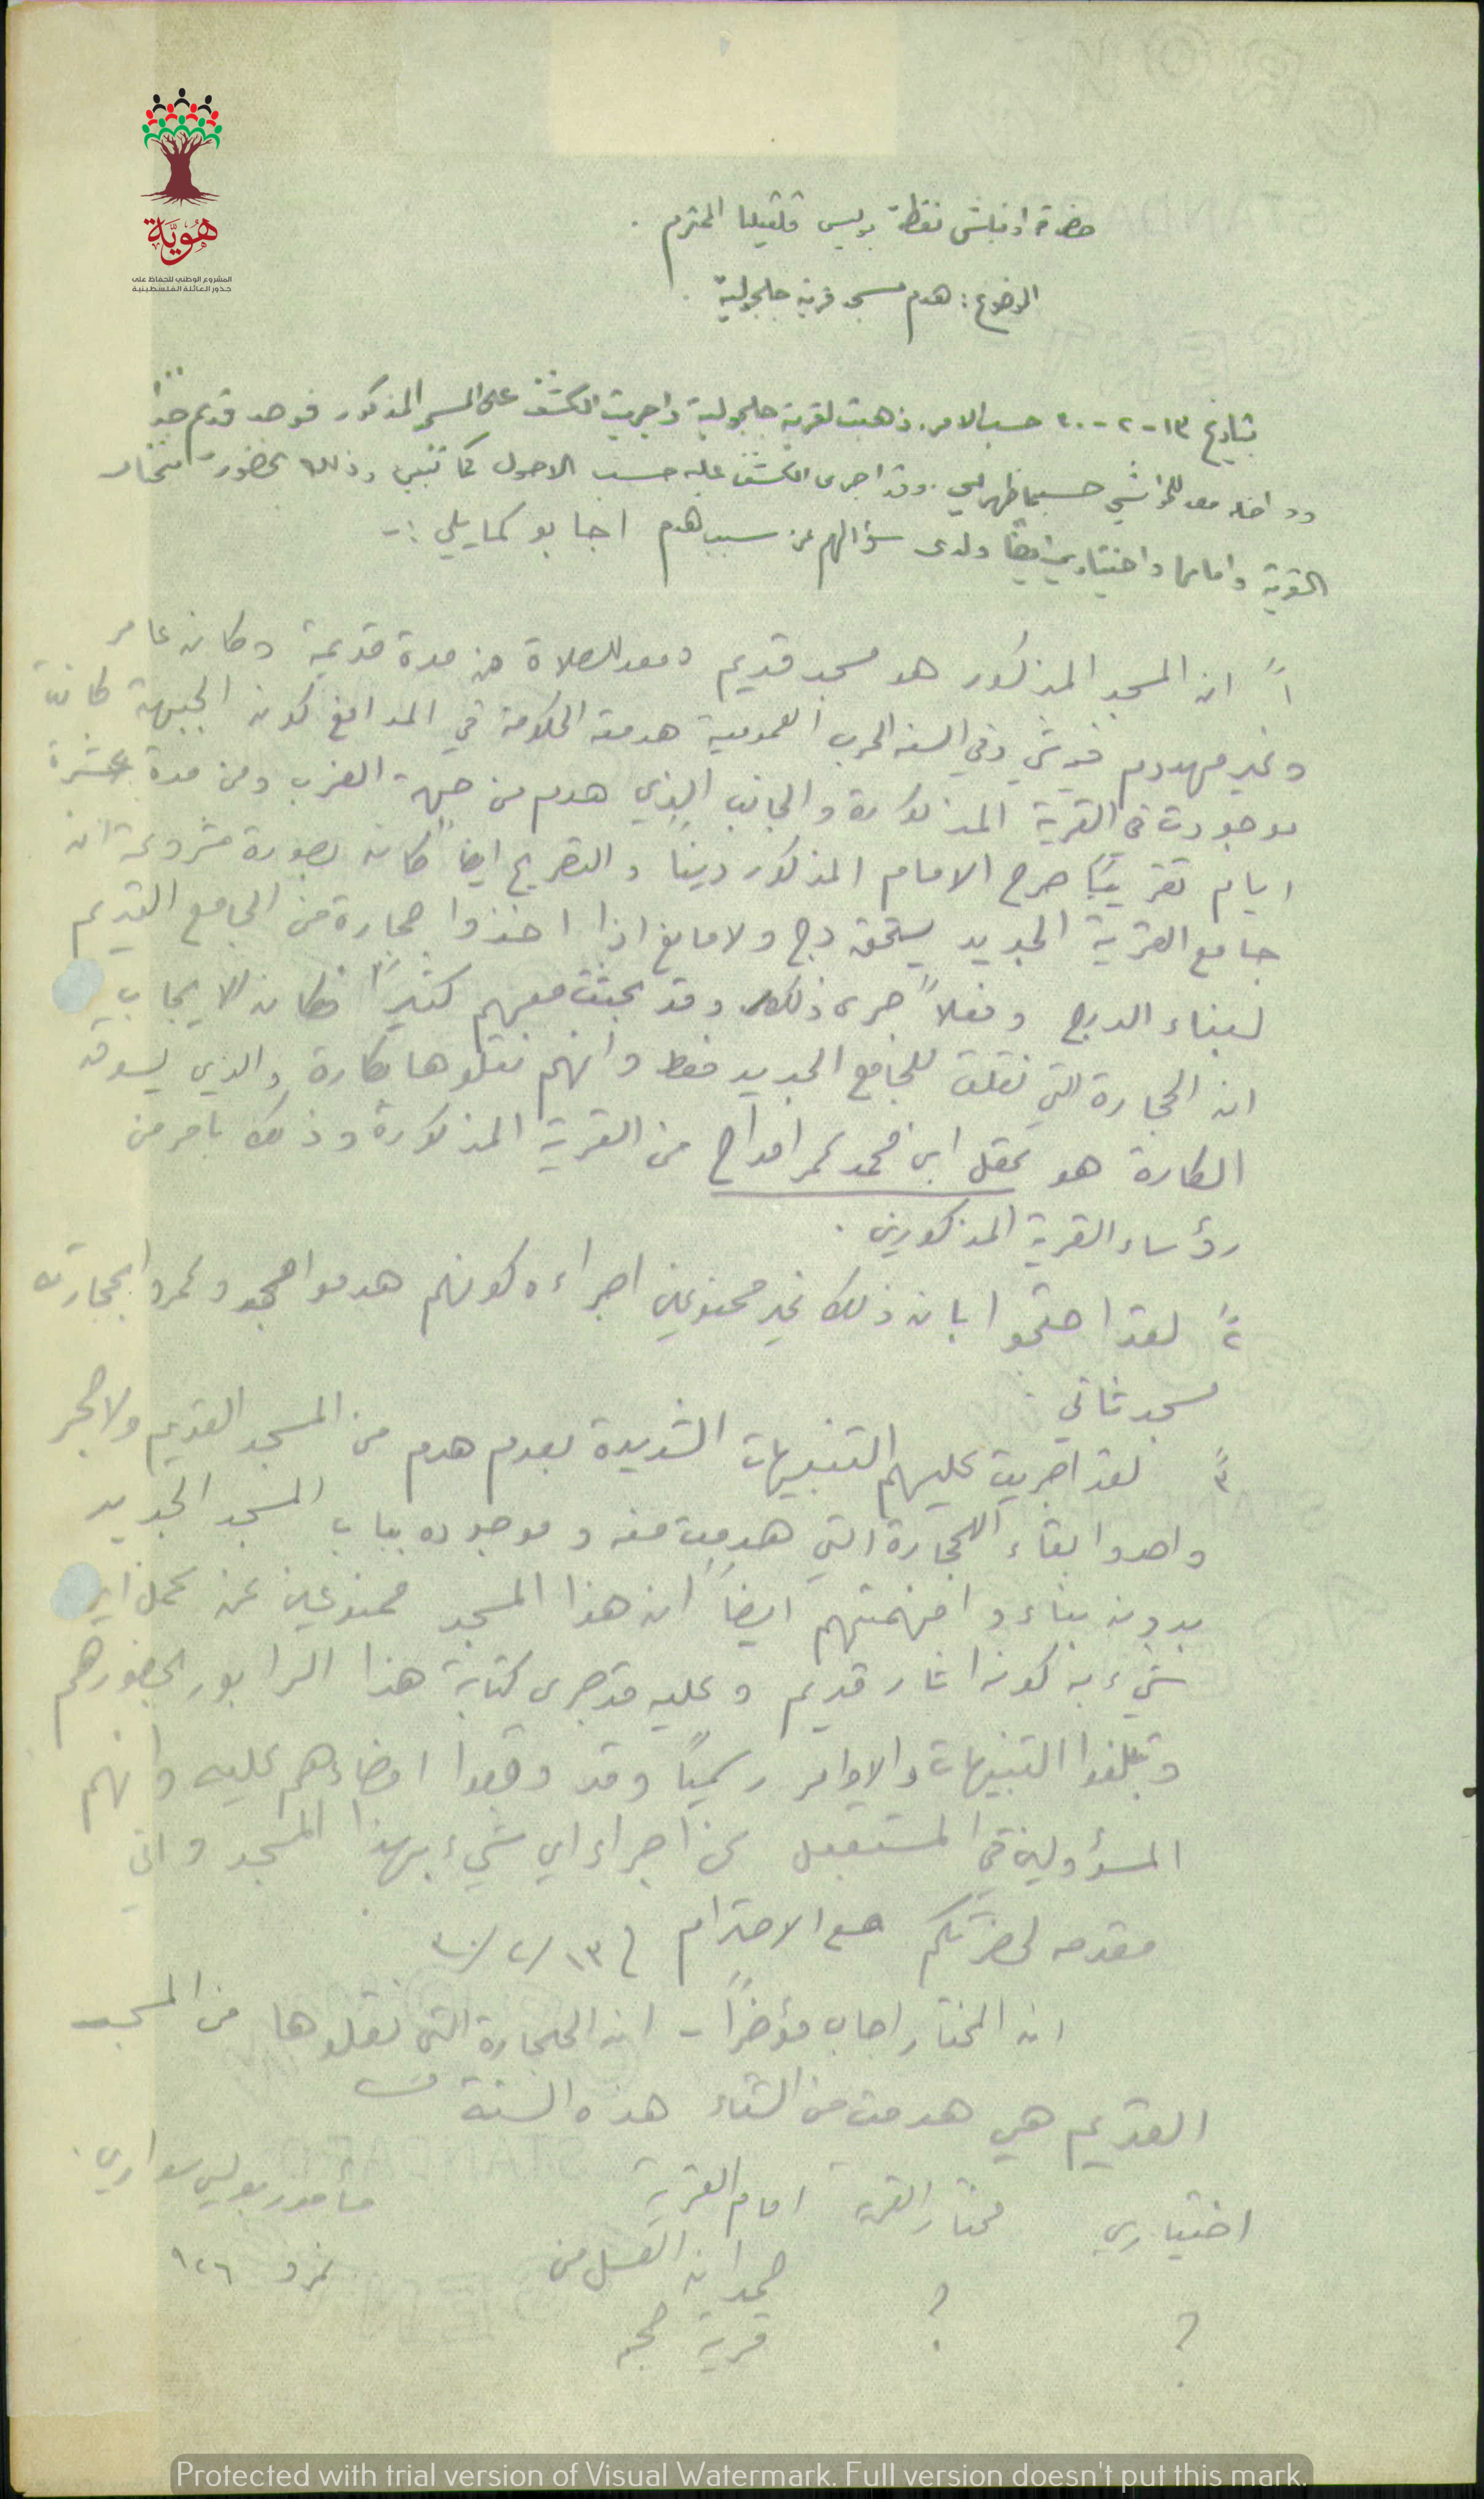 هُوِيَّة
المشروع الوطني للحفاظ على
جذور العائلة الفلسطينية
حضرة اونباشي نقطة بوليس قلقيليا المحترم .
الموضوع : هدم مسجد قرية جلجولية .
بتاريخ ١٣-٢-٣٠ حسب الامر . ذهبت لقرية جلجولية واجريت الكشف على المسجد المذكور فوجد قديم جداً
وداخله معد للمواشي حسبما ظهر لي . وقد اجرى الكشف عليه حسب الاصول كما تنبي وذلك بحضور مختار
القرية وامامها واختياري ايضاً ولدى سؤالهم عن سبب هدم اجابو كما يلي :-
١ً ان المسجد المذكور هو مسجد قديم ومعد للصلاة من مدة قديمة وكان عامر
وغير مهدوم وفي السنه الحرب العمومية هدمته الحكومة في المدافع كون الجبهة كانت
موجودت في القرية المذكورة والجانب الذي هدم من جهة الغرب ومن مدة عشرة
ايام تقريباً صرح الامام المذكور ديناً والتصريح ايضاً كان بصورة مشروعة ان
جامع القرية الجديد يستحق درج ولا مانع اذا اخذوا حجارة من الجامع القديم
لبناء الدرج وفعلاً جرى ذلك وقد بحثت معهم كثيراً فكان الايجاب
ان الحجارة التي نقلت للجامع الجديد فقط وانهم نقلوها بكارة والذي يسوق
الكارة هو عقل ابن محمد عمر من القرية المذكورة وذلك بامر من
رؤساء القرية المذكورين .
٢ً لقد احتجوا بان ذلك غير ممنوعين اجراءه كونهم هدموا وعمروا بحجارته
مسجد ثاني .
٣ً لقد اجريت عليهم التنبيهات الشديدة بعدم هدم من المسجد القديم ولا حجر
واحد وابقاء الحجارة التي هدمت منه وموجوده بباب المسجد الجديد
بدون بناء وافهمتهم ايضاً ان هذا المسجد ممنوعين عن عمل اي
شيء به كونه اثار قديم وعليه قد جرى كتابة هذا الرابور بحضورهم
وتبلغوا التنبيهات والاوامر رسمياً وقد وقعوا امضاءهم عليه وانهم
المسؤولين في المستقبل عن اجراء اي شيء بهذا المسجد واني
مقدمه لحضرتكم مع الاحترام في ١٣/٢/٣٠
ان المختار اجاب مؤخراً - ان الحجارة التي نقلوها من المسجد
القديم هي هدمت من الشتاء هذه السنة
اختياري مختار القرية امام القرية مأمور بوليس سواري .
؟ ؟ حمدان العسل من نمرو ٩٢٦
قرية حجه
Protected with trial version of Visual Watermark. Full version doesn't put this mark.